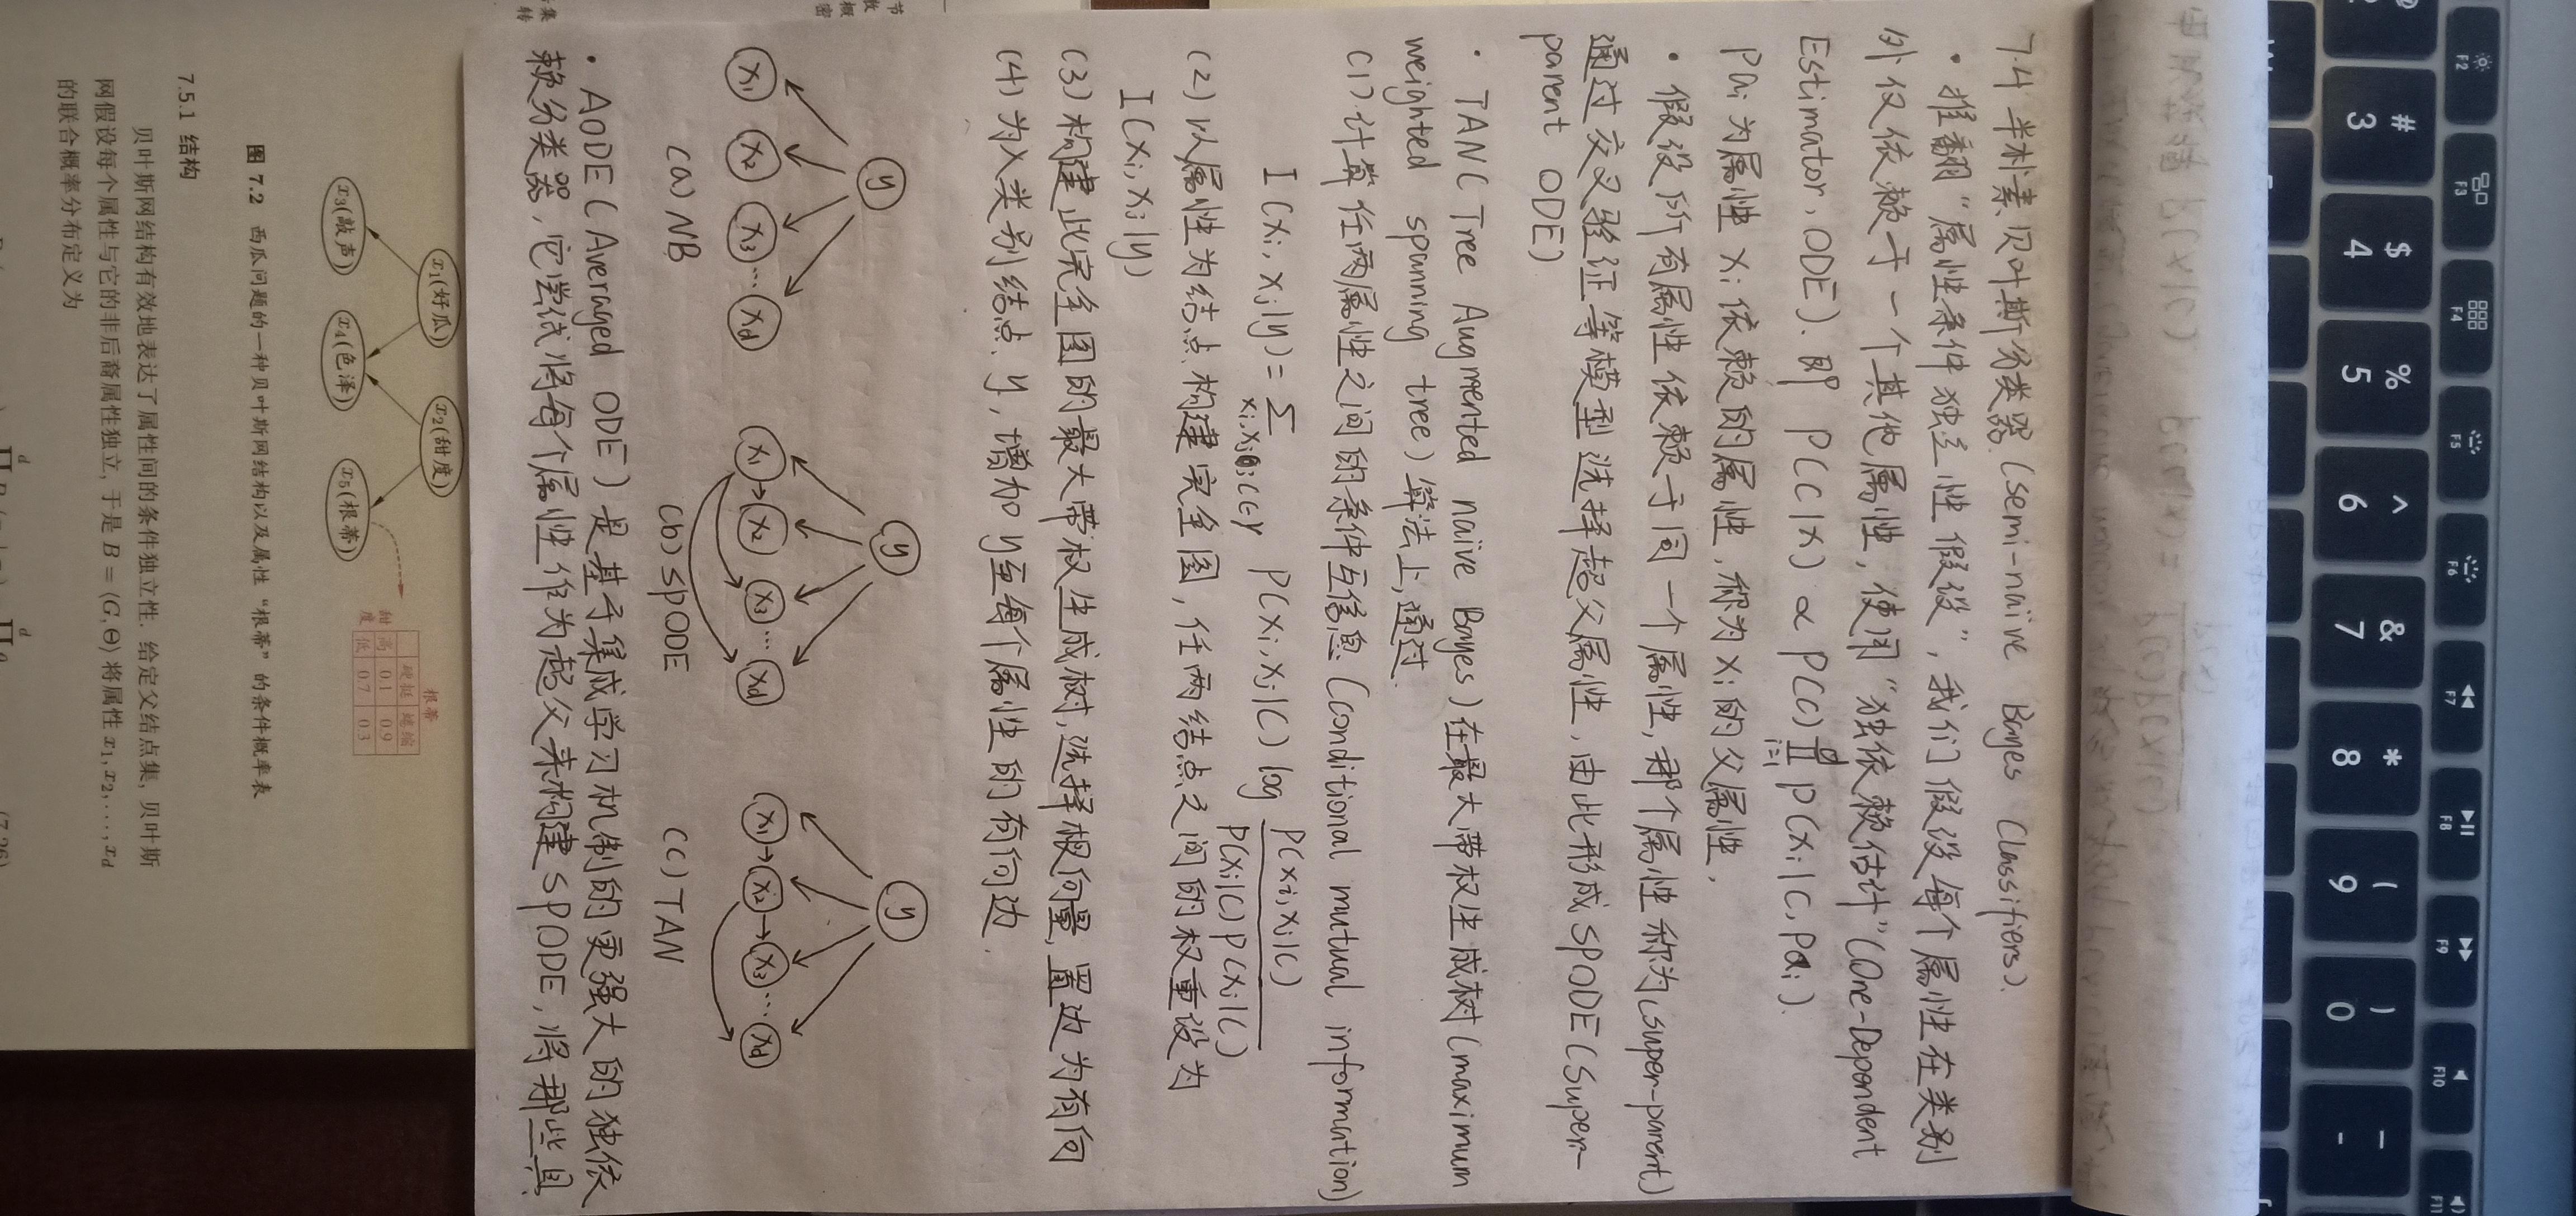 7.4 半朴素贝叶斯分类器 (semi-naïve Bayes Classifiers).
· 推翻“属性条件独立性假设”, 我们假设每个属性在类别
外仅依赖于一个其他属性, 使用“独依赖估计”(One-Dependent
Estimator, ODE). 即 P(C|X) ∝ P(C) ∏ᵢ₌₁ᵈ P(Xi|C, Pai).
Pai为属性 Xi依赖的属性, 称为Xi的父属性.
· 假设所有属性依赖于同一个属性, 那个属性称为(super-parent)
通过交叉验证等模型选择超父属性, 由此形成SPODE(Super-
parent ODE)
· TAN(Tree Augmented naïve Bayes)在最大带权生成树(maximum
weighted spanning tree)算法上,通过
(1)计算任两属性之间的条件互信息 (Conditional mutual information)
I(Xi, Xj|y) = Σ P(Xi, Xj|C) log P(Xi, Xj|C) / P(Xi|C) P(Xj|C)
Xi, Xj; C∈Y
(2)以属性为结点,构建完全图, 任两结点之间的权重设为
I(Xi, Xj|y)
(3)构建此完全图的最大带权生成树,选择根向量, 置边为有向
(4)为X类别结点 y, 增加y至每个属性的有向边.
y
X1 X2 X3 ... Xd
(a) NB
y
X1 X2 X3 ... Xd
(b) SPODE
y
X1 X2 X3 ... Xd
(c) TAN
· AODE(Averaged ODE)是基于集成学习机制的更强大的独依
赖分类器, 它尝试将每个属性作为超父来构建SPODE, 将那些具
x1(好瓜) x2(甜度)
x3(敲声) x4(色泽) x5(根蒂)
根蒂
硬挺 蜷缩
甜度 高 0.1 0.9
低 0.7 0.3
图 7.2 西瓜问题的一种贝叶斯网结构以及属性“根蒂”的条件概率表
7.5.1 结构
贝叶斯网结构有效地表达了属性间的条件独立性. 给定父结点集, 贝叶斯
网假设每个属性与它的非后裔属性独立, 于是 B = ⟨G, Θ⟩ 将属性 x1, x2, . . . , xd
的联合概率分布定义为
(7.26)
F2
F3
F4
F5
F6
F7
F8
F9
F10
F11
# 3
$ 4
% 5
^ 6
& 7
* 8
( 9
) 0